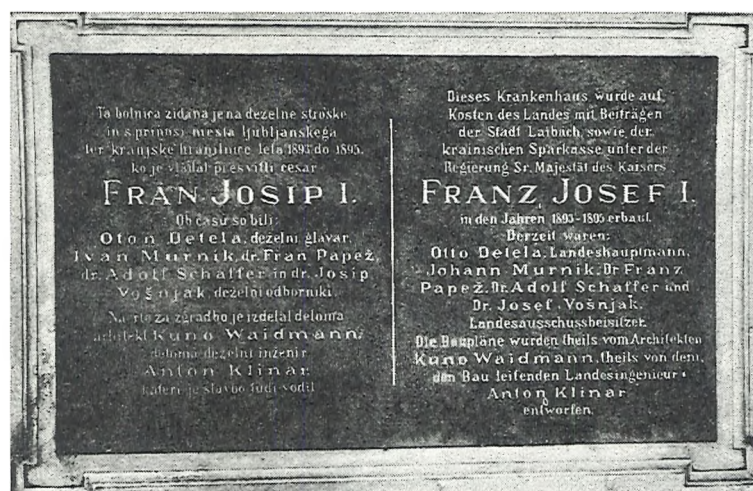 Ta bolnica zidana je na deželne stroške
in s prinosi mesta ljubljanskega
ter kranjske hranilnice leta 1893 do 1895.
ko je vladal presvitli cesar
FRAN JOSIP I.
Ob času so bili:
Oton Detela, deželni glavar,
Ivan Murnik, dr. Fran Papež,
dr. Adolf Schaffer in dr. Josip
Vošnjak, deželni odborniki.
Načrte za zgradbo je izdelal deloma
arhitekt Kuno Waidmann,
deloma deželni inženir
Anton Klinar
kateri je stavbo tudi vodil
Dieses Krankenhaus wurde auf
Kosten des Landes mit Beiträgen
der Stadt Laibach, sowie der
krainischen Sparkasse unter der
Regierung Sr. Majestät des Kaisers
FRANZ JOSEF I.
in den Jahren 1893-1895 erbaut.
Derzeit waren:
Otto Detela, Landeshauptmann,
Johann Murnik, Dr Franz
Papež, Dr. Adolf Schaffer und
Dr. Josef Vošnjak,
Landesausschussbeisitzer.
Die Baupläne wurden theils vom Architekten
Kuno Waidmann, theils von dem,
den Bau leitenden Landesingenieur
Anton Klinar
entworfen.